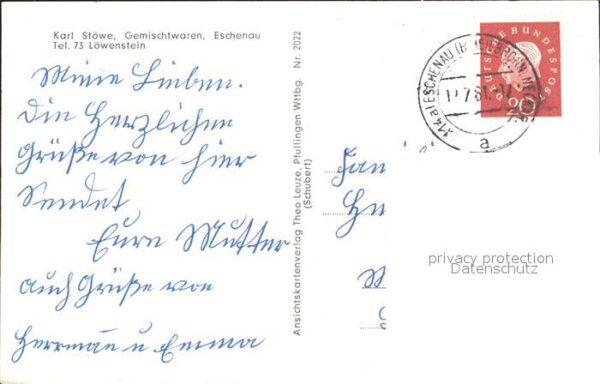 Karl Stöwe, Gemischtwaren, Eschenau
Tel. 73 Löwenstein
Meine Lieben.
Die Herzlichen
Grüße von hier
Sendet
Eure Mutter
auch Grüße von
Herrmann u Emma
Ansichtskartenverlag Theo Leuze, Pfullingen Wttbg. Nr. 2022
(Schubert)
DEUTSCHE BUNDESPOST
20
ESCHENAU
a
Fam
He
privacy protection
Datenschutz